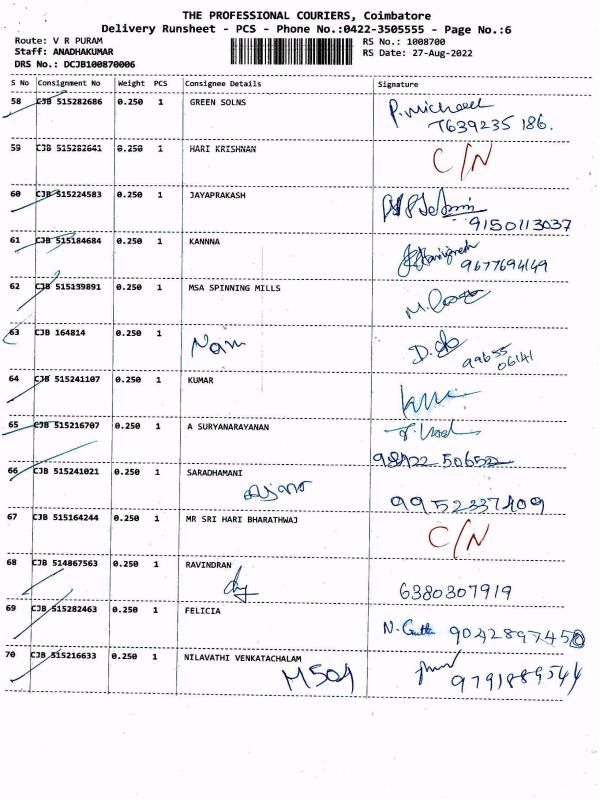 THE PROFESSIONAL COURIERS, Coimbatore
Delivery Runsheet - PCS - Phone No.:0422-3505555 - Page No.:6
Route: V R PURAM RS No.: 1008700
Staff: ANADHAKUMAR RS Date: 27-Aug-2022
DRS No.: DCJB100870006
S No Consignment No Weight PCS Consignee Details Signature
58 CJB 515282686 0.250 1 GREEN SOLNS P. Michael
7639235 186.
59 CJB 515282641 0.250 1 HARI KRISHNAN C/N
60 CJB 515224583 0.250 1 JAYAPRAKASH
9150113037
61 CJB 515184684 0.250 1 KANNNA
9677694149
62 CJB 515139891 0.250 1 MSA SPINNING MILLS
63 CJB 164814 0.250 1
99655
06141
64 CJB 515241107 0.250 1 KUMAR
65 CJB 515216707 0.250 1 A SURYANARAYANAN
66 CJB 515241021 0.250 1 SARADHAMANI
9952337409
67 CJB 515164244 0.250 1 MR SRI HARI BHARATHWAJ C/N
68 CJB 514867563 0.250 1 RAVINDRAN
6380307919
69 CJB 515282463 0.250 1 FELICIA
9042897450
70 CJB 515216633 0.250 1 NILAVATHI VENKATACHALAM
9791889544